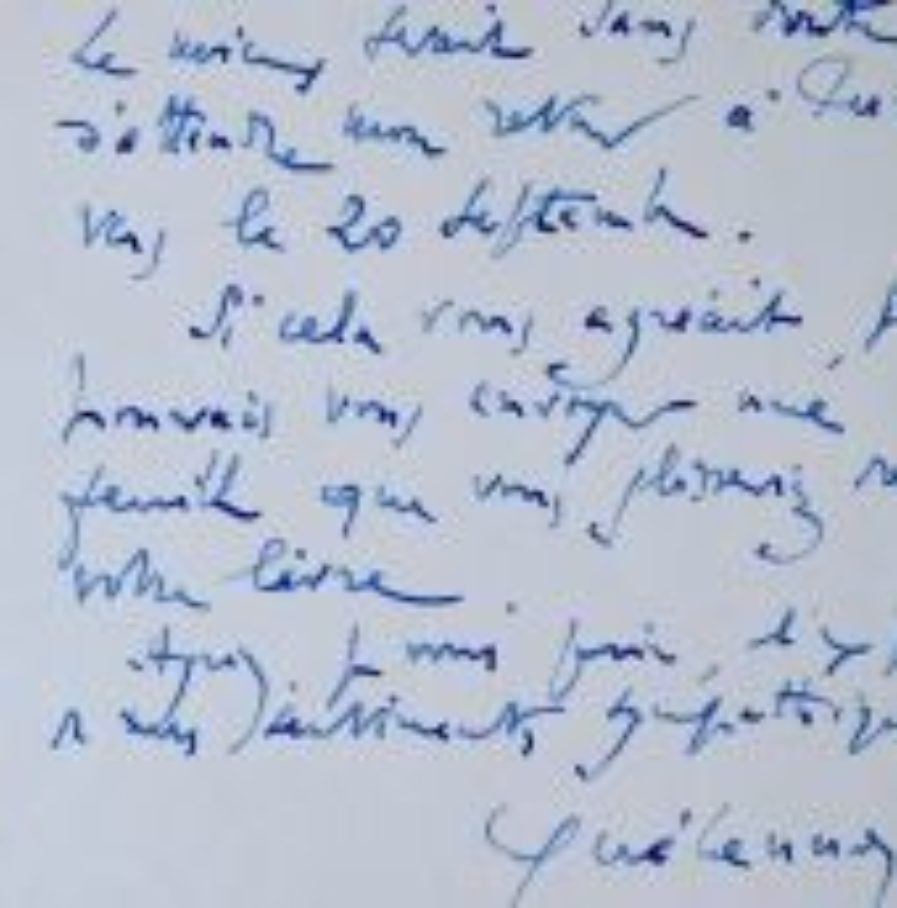 Le mieux serait sans doute
d'attendre mon retour à
vers le 20 septembre.
Si cela vous agréait,
pouvais vous envoyer une
feuille que vous glisseriez
votre livre.
Agréez je vous prie,
de mes sentiments sympathiqu